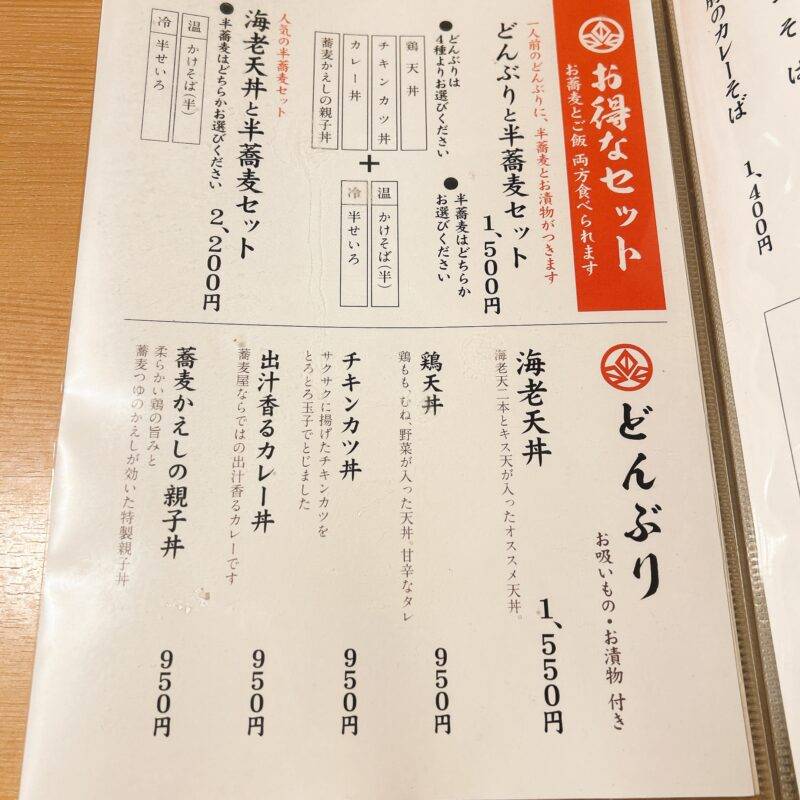 そば
前のカレーそば
1,400円
お得なセット
お蕎麦とご飯 両方食べられます
一人前のどんぶりに、半蕎麦とお漬物がつきます
どんぶりと半蕎麦セット
1,500円
●どんぶりは
4種よりお選びください
鶏天丼
チキンカツ丼
カレー丼
蕎麦かえしの親子丼
+
●半蕎麦はどちらか
お選びください
温 かけそば(半)
冷 半せいろ
人気の半蕎麦セット
海老天丼と半蕎麦セット
2,200円
●半蕎麦はどちらかお選びください
温 かけそば(半)
冷 半せいろ
どんぶり
お吸いもの・お漬物 付き
海老天丼
1,550円
海老天二本とキス天が入ったオススメ天丼。
鶏天丼
950円
鶏もも、むね、野菜が入った天丼。甘辛なタレ
チキンカツ丼
950円
サクサクに揚げたチキンカツを
とろとろ玉子でとじました
出汁香るカレー丼
950円
蕎麦屋ならではの出汁香るカレーです
蕎麦かえしの親子丼
950円
柔らかい鶏の旨みと
蕎麦つゆのかえしが効いた特製親子丼